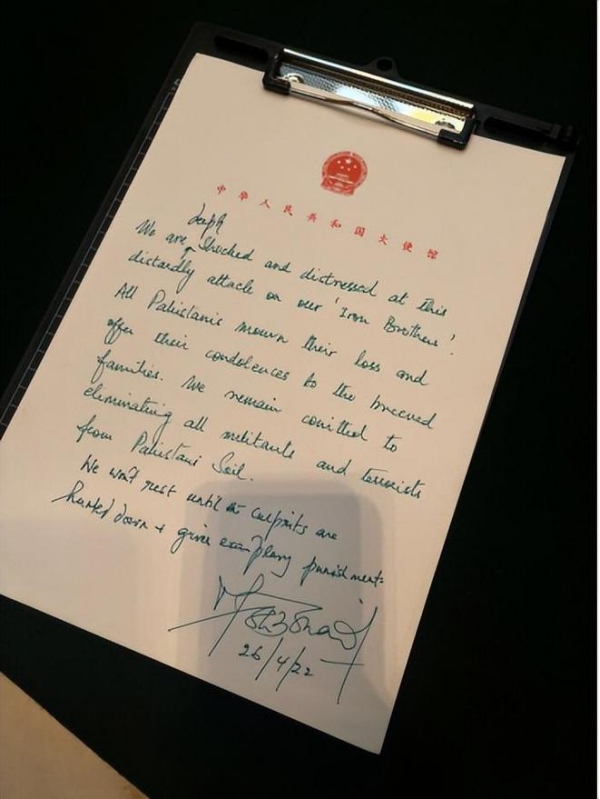 中华人民共和国大使馆
deeply
We are shocked and distressed at this
dastardly attack on our 'Iron Brothers'.
All Pakistanis mourn their loss and
offer their condolences to the breeved
families. We remain comitted to
eliminating all militants and terrorists
from Pakistani Soil.
We won't rest until culprits are
hunted down + given exemplary punishment.
26/4/22